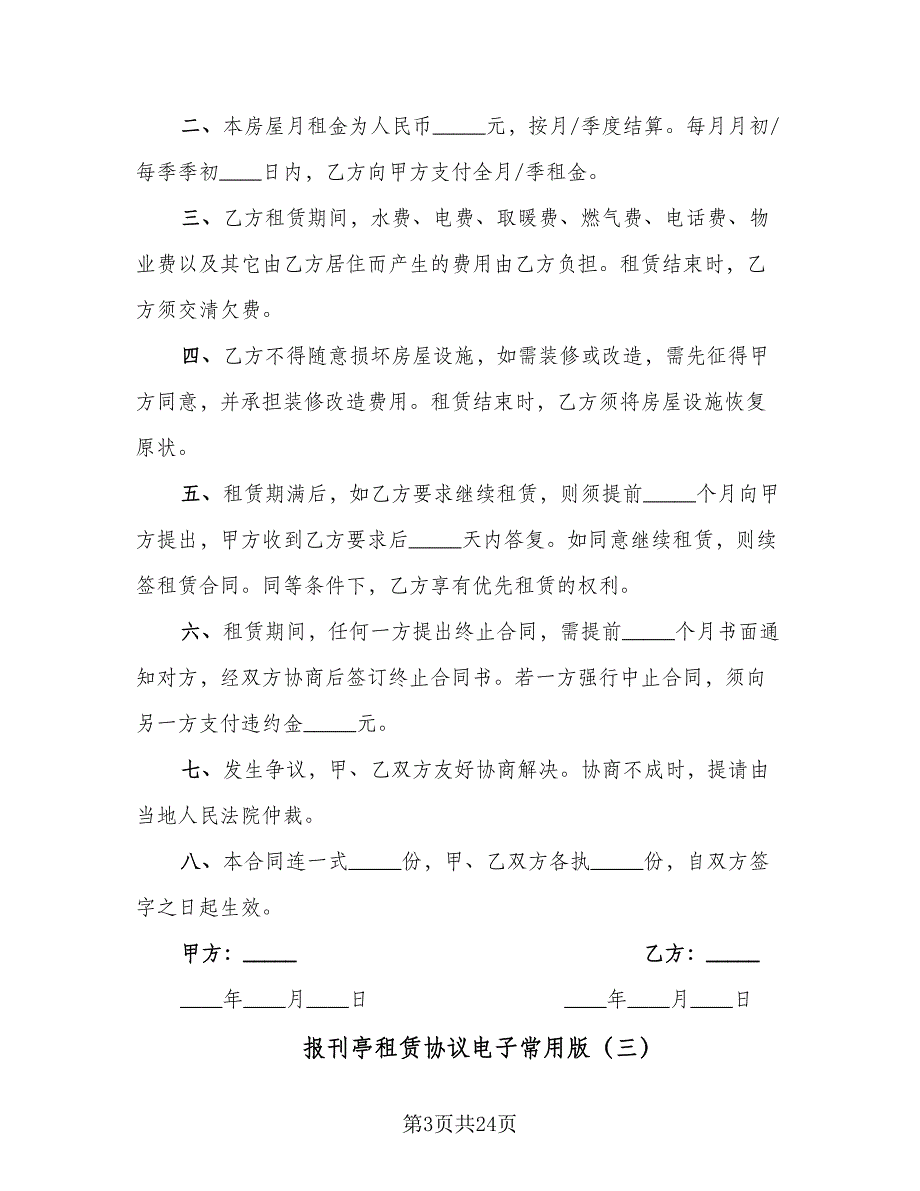 二、本房屋月租金为人民币_____元，按月/季度结算。每月月初/
每季季初____日内，乙方向甲方支付全月/季租金。
三、乙方租赁期间，水费、电费、取暖费、燃气费、电话费、物
业费以及其它由乙方居住而产生的费用由乙方负担。租赁结束时，乙
方须交清欠费。
四、乙方不得随意损坏房屋设施，如需装修或改造，需先征得甲
方同意，并承担装修改造费用。租赁结束时，乙方须将房屋设施恢复
原状。
五、租赁期满后，如乙方要求继续租赁，则须提前_____个月向甲
方提出，甲方收到乙方要求后_____天内答复。如同意继续租赁，则续
签租赁合同。同等条件下，乙方享有优先租赁的权利。
六、租赁期间，任何一方提出终止合同，需提前_____个月书面通
知对方，经双方协商后签订终止合同书。若一方强行中止合同，须向
另一方支付违约金_____元。
七、发生争议，甲、乙双方友好协商解决。协商不成时，提请由
当地人民法院仲裁。
八、本合同连一式_____份，甲、乙双方各执_____份，自双方签
字之日起生效。
甲方：_____ 乙方：_____
____年____月____日 ____年____月____日
报刊亭租赁协议电子常用版（三）
第3页共24页